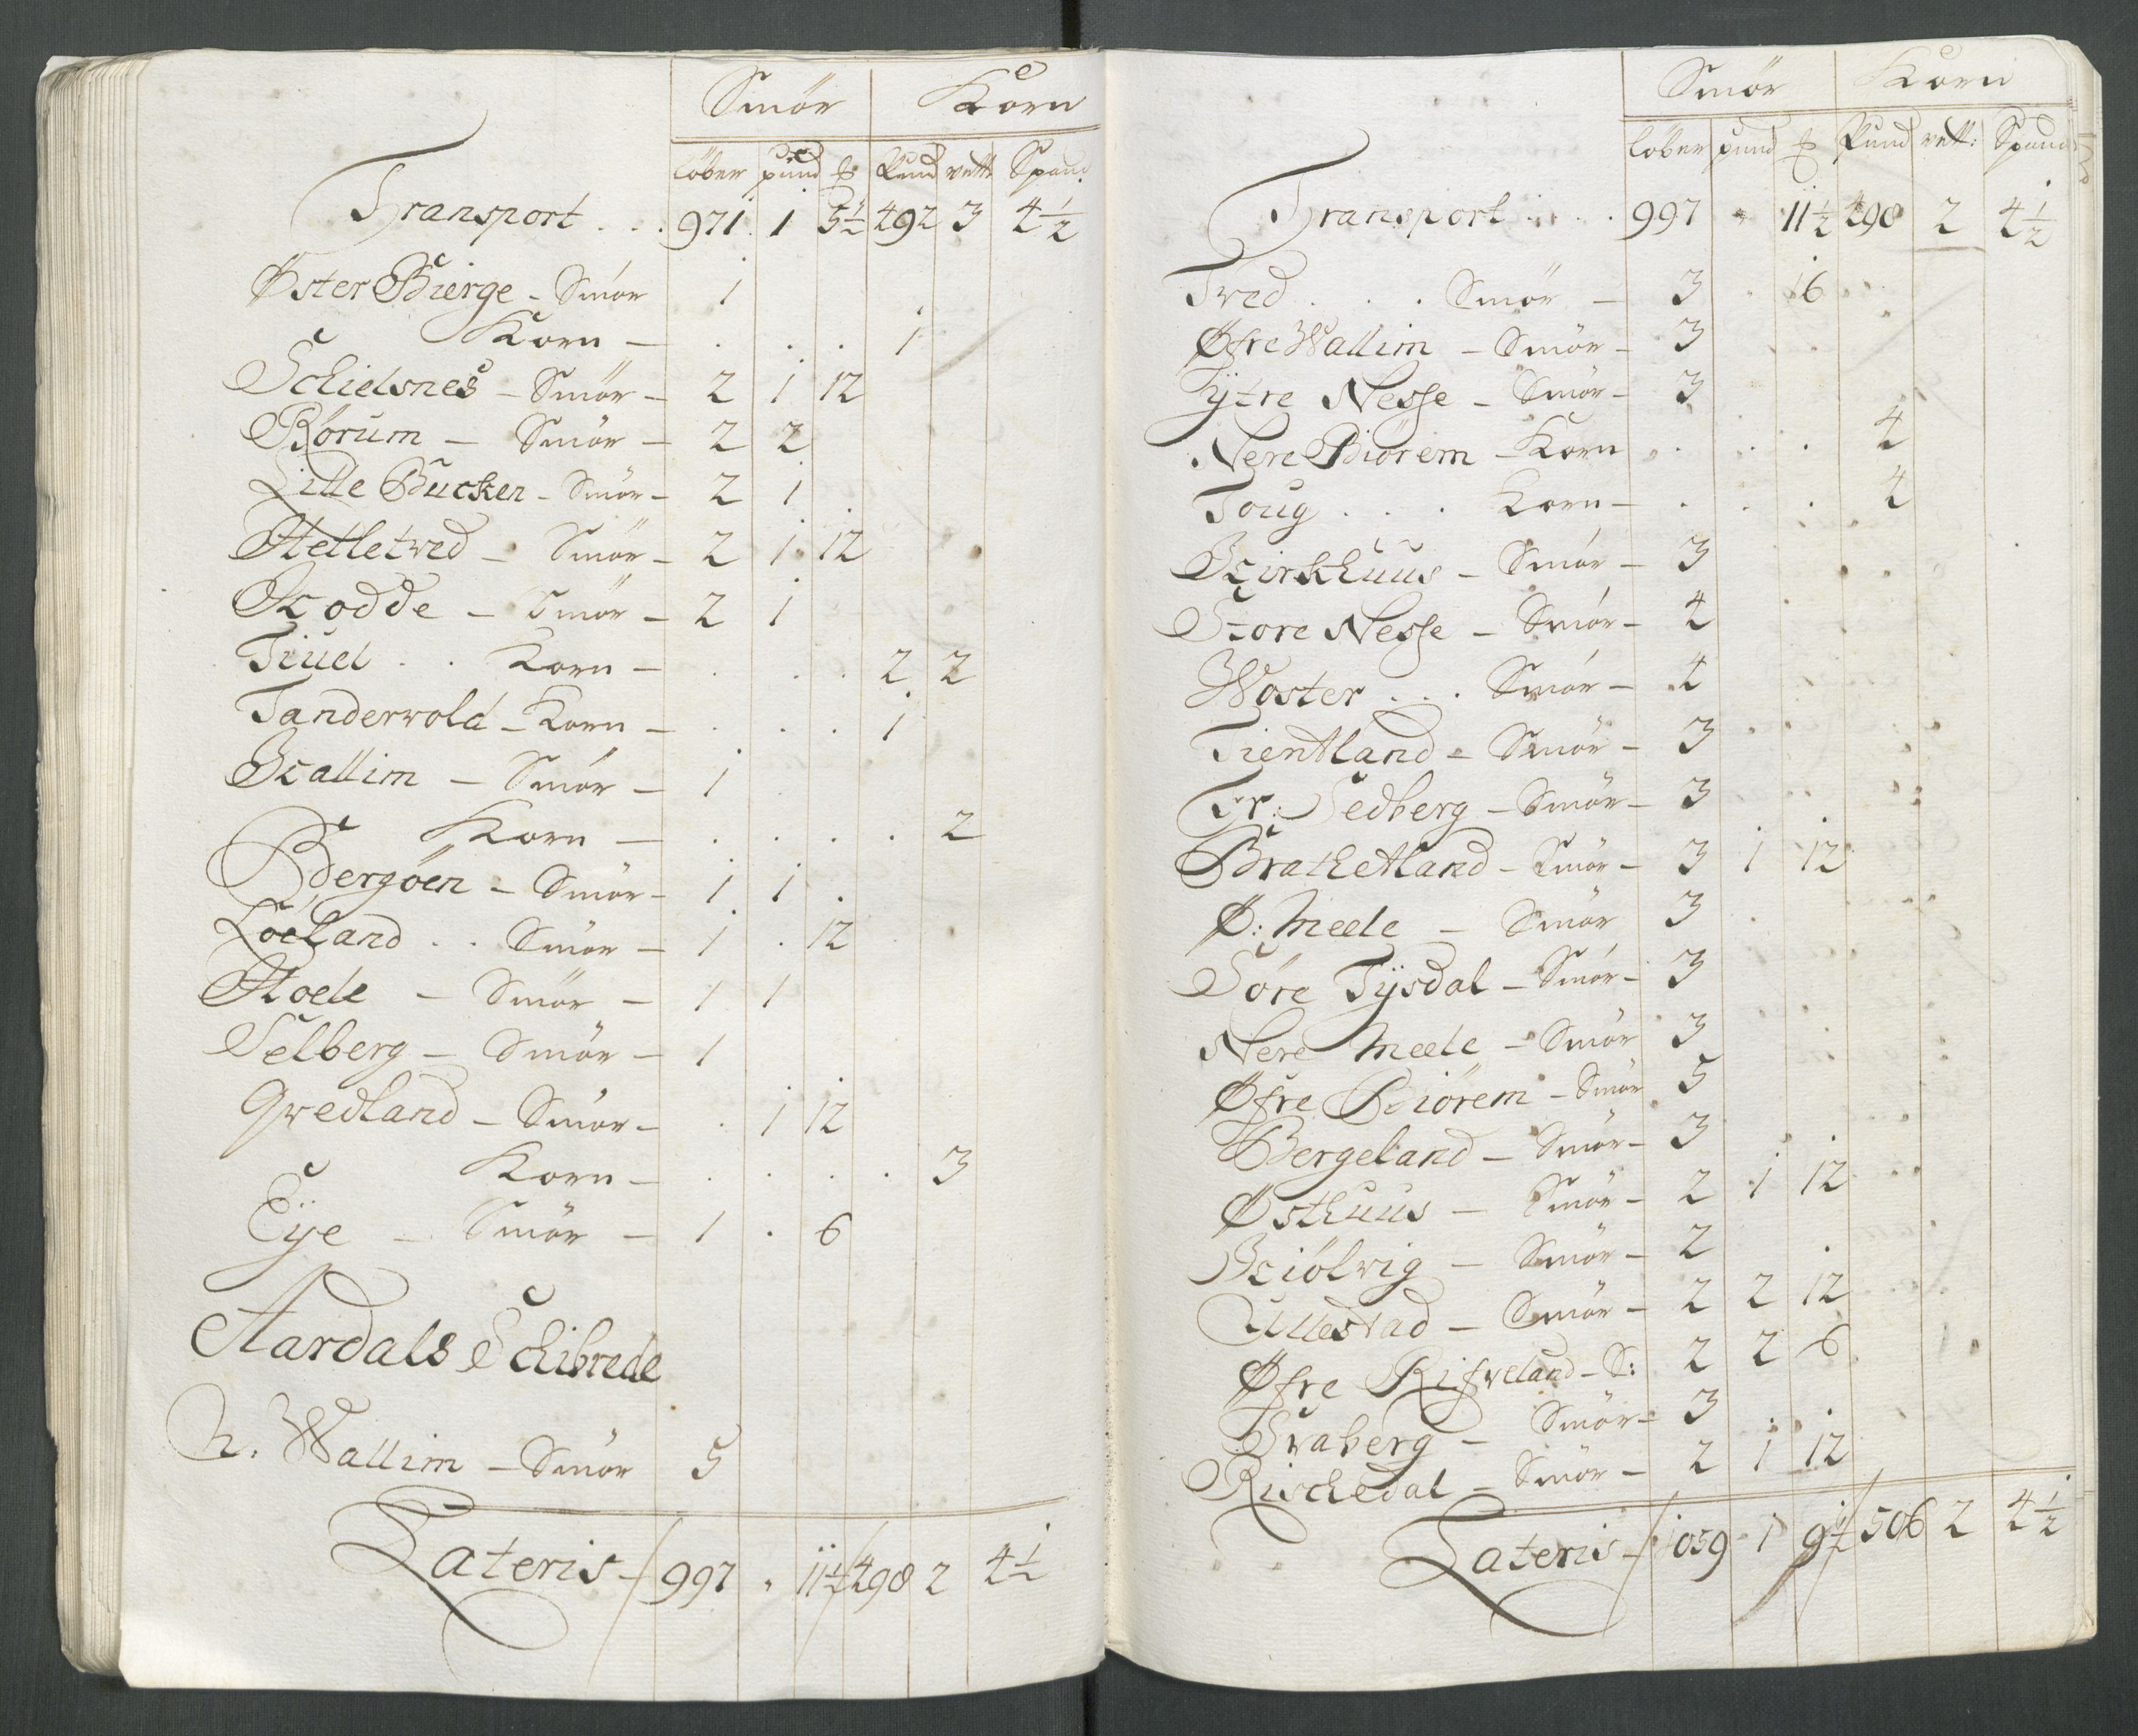 Smör Korn
löber pund ℔ Pund vett: Spand
Transport . . . 971 1 5½ 492 3 4½
Øster Bierge - Smör 1
Korn — . . . 1
Schielsnes - Smör - 2 1 12
Börum — Smör — 2 2
Lille Bucken - Smör - 2 1
Hetletved - Smör - 2 1 12
Hodde - Smör - 2 1
Tiuel . . Korn — . . . 2 2
Tandervold - Korn — . . . 1
Hallim — Smör — 1
Korn — . . . . 2
Bergöen - Smör - 1 1 .
Löeland . . Smör — 1 . 12
Hoele - Smör - 1 1
Selberg — Smör — 1
Qvedland — Smör — . 1 12
Korn — . . . . 3
Eÿe — Smör — 1 . 6
Aardals Schibrede
N. Wallim — Smör 5
Lateris — 997 " 11½ 498 2 4½
Smör Korn
löber pund ℔ Pund vett: Spand
Transport . . . . 997 " 11½ 498 2 4½
Tved . . . Smör — 3 " 16
Øfre Wallim — Smör - 3
Ÿtre Nesse — Smör - 3
Nere Biörem — Korn . . . 4
Toug . . . Korn — . . . 4
Birkhuus — Smör — 3
Store Nesse — Smör — 4
Woster . . . Smör — 4
Tientland - Smör - 3
Fr: Sedberg — Smör — 3
Brathetland - Smör - 3 1 12
Ø: Meele — Smör 3
Söre Tÿsdal — Smör - 3
Nere Meele - Smör 3
Øfre Biörem - Smör 5
Bergeland — Smör - 3
Østhuus — Smör - 2 1 12
Hiölvig — Smör — 2
Ullestad — Smör — 2 2 12
Øfre Rifveland - S: 2 2 6
Svaberg — Smör - 3
Rischedal — Smör — 2 1 12
Lateris — 1059 1 9½ 506 2 4½